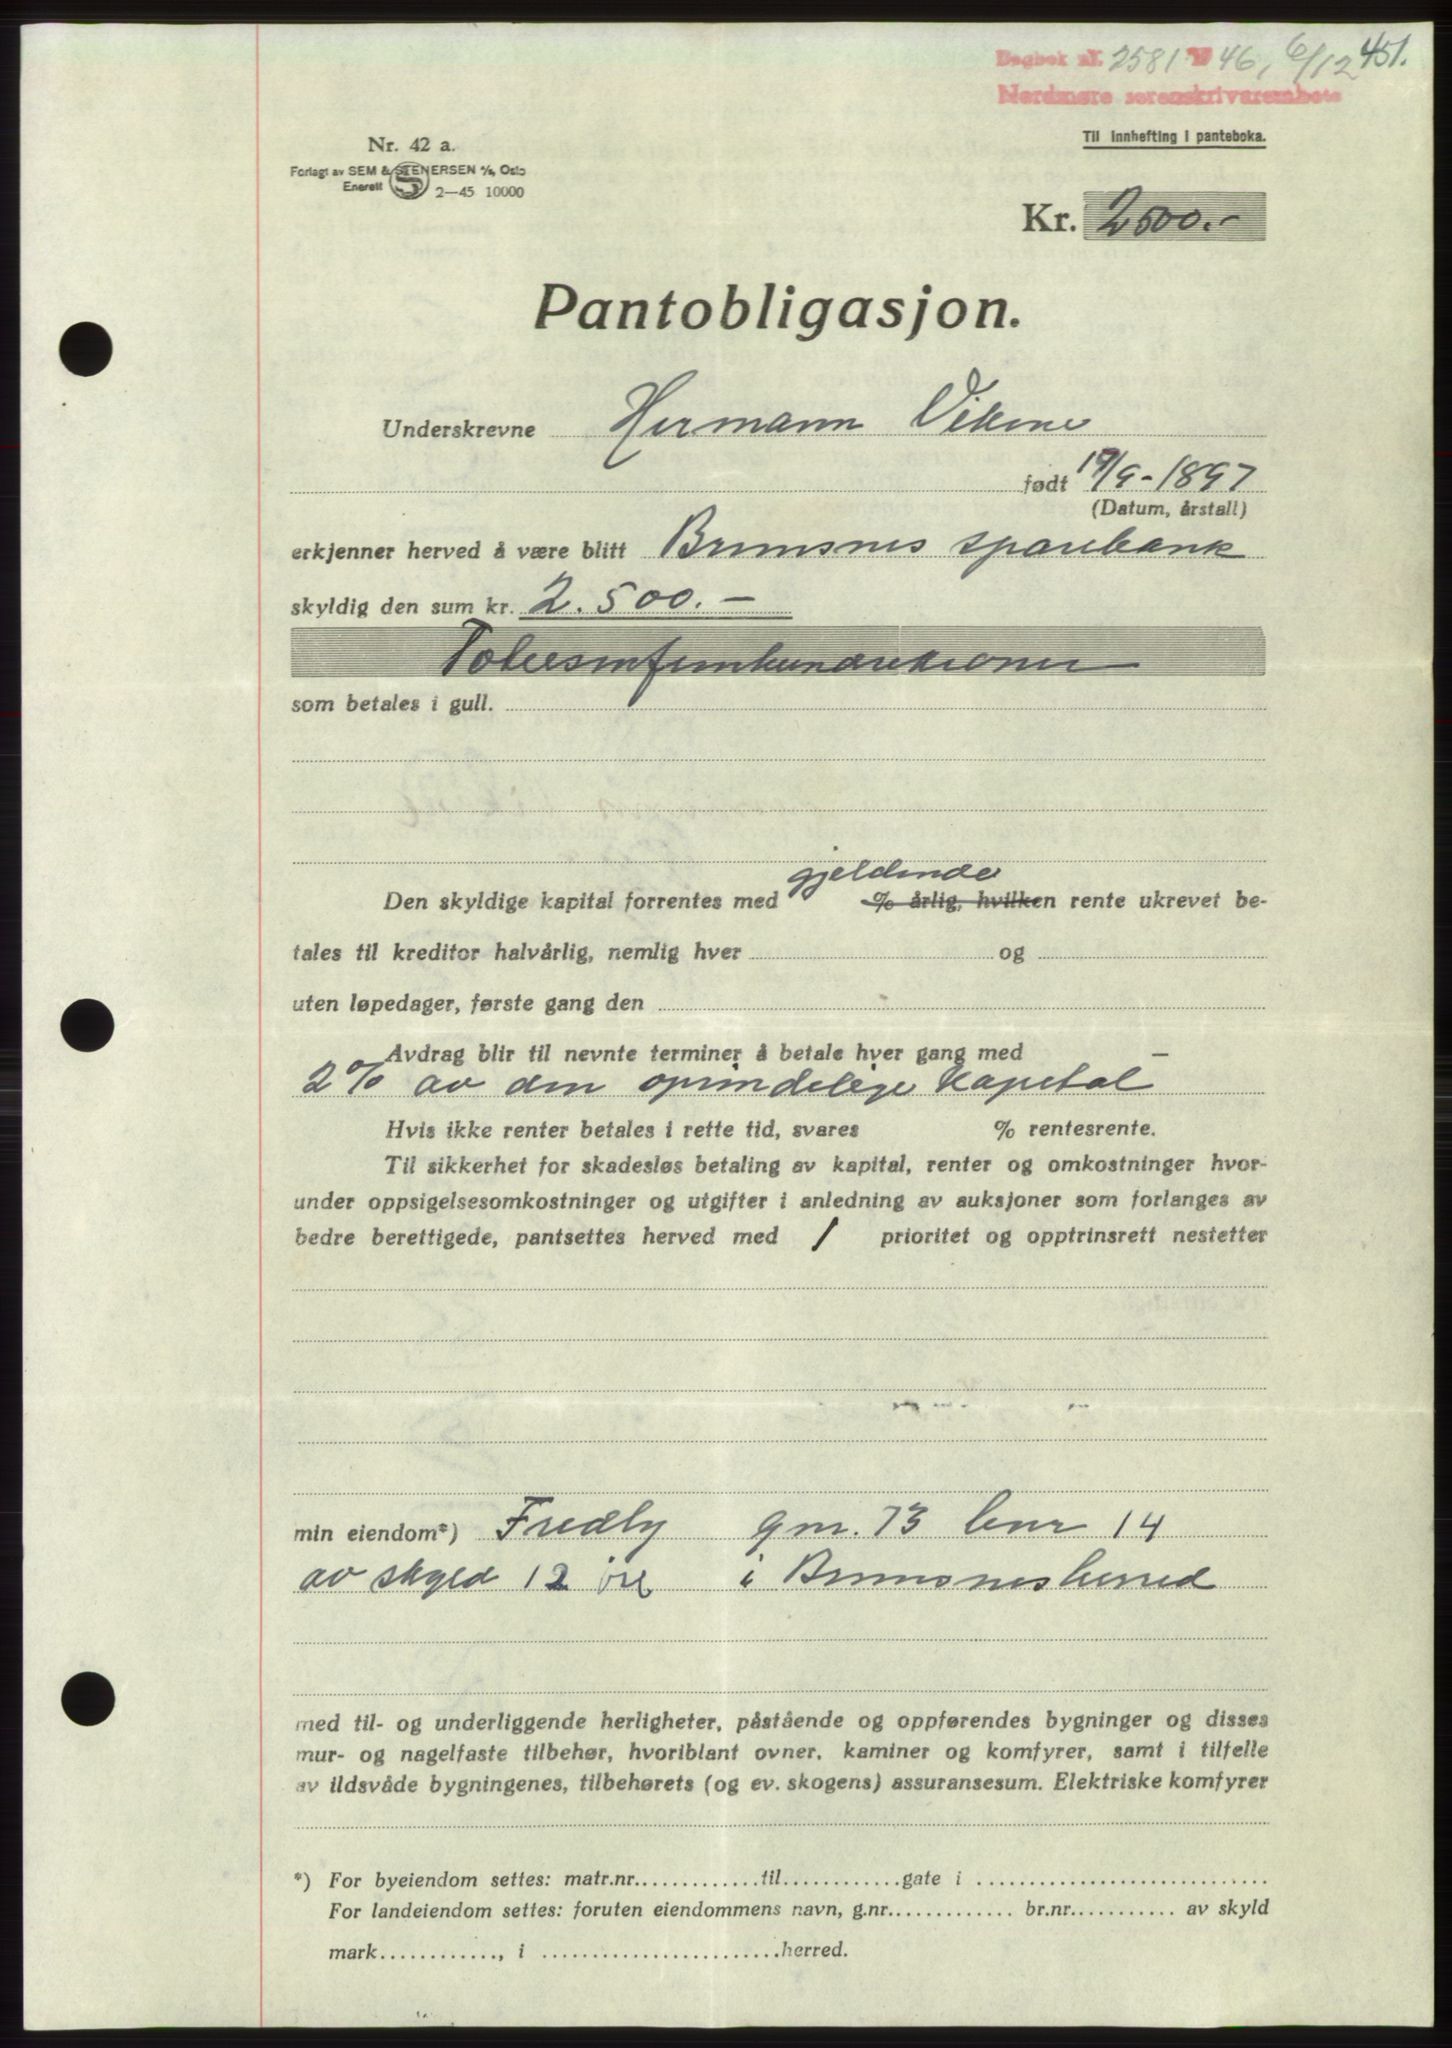 Dagbok nr. 2581 19 46, 6/12 451.
Nordmøre sorenskrivarembete
Til innhefting i panteboka.
Nr. 42 a.
Forlagt av SEM & STENERSEN A/S, Oslo
Enerett 2—45 10000
Kr. 2500.-
Pantobligasjon.
Underskrevne Hermann Vikene
født 19/9-1897
(Datum, årstall)
erkjenner herved å være blitt Bremsnes sparebank
skyldig den sum kr. 2.500.-
Totusenfemhundrekroner
som betales i gull.
gjeldende
Den skyldige kapital forrentes med % årlig, hvilken rente ukrevet be-
tales til kreditor halvårlig, nemlig hver og
uten løpedager, første gang den
Avdrag blir til nevnte terminer å betale hver gang med
2% av den oprindelige kapital
Hvis ikke renter betales i rette tid, svares % rentesrente.
Til sikkerhet for skadesløs betaling av kapital, renter og omkostninger hvor-
under oppsigelsesomkostninger og utgifter i anledning av auksjoner som forlanges av
bedre berettigede, pantsettes herved med 1 prioritet og opptrinsrett nestetter
min eiendom*) Fredly gnr. 73 bnr 14
av skyld 12 øre i Bremsnes herred
med til- og underliggende herligheter, påstående og oppførendes bygninger og disses
mur- og nagelfaste tilbehør, hvoriblant ovner, kaminer og komfyrer, samt i tilfelle
av ildsvåde bygningenes, tilbehørets (og ev. skogens) assuransesum. Elektriske komfyrer
*) For byeiendom settes: matr.nr.............til............gate i ............................
For landeiendom settes: foruten eiendommens navn, g.nr............. br.nr........... av skyld
mark............, i ........................herred.